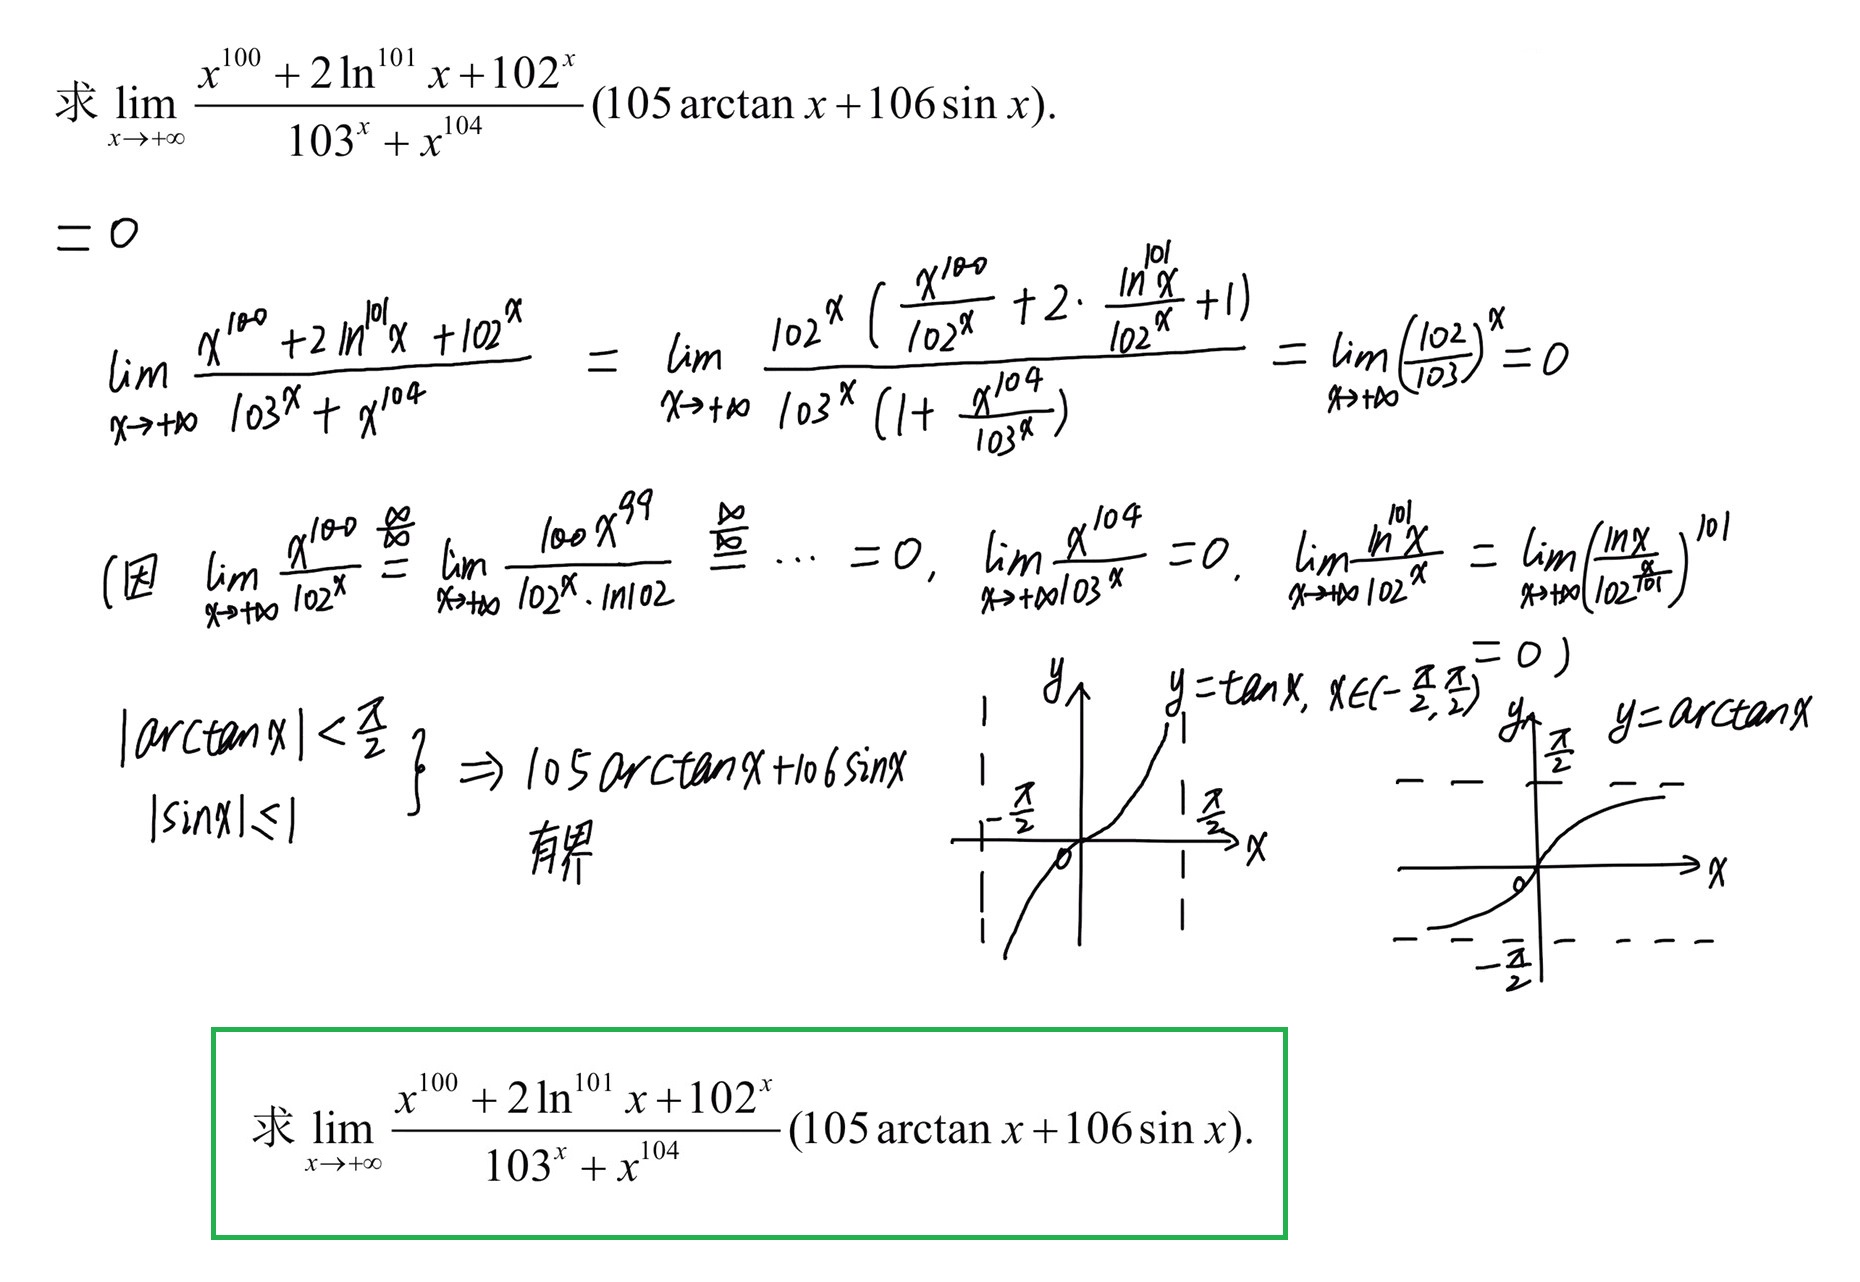 求 lim_{x→+∞} \frac{x^{100}+2\ln^{101}x+102^x}{103^x+x^{104}}(105 arctan x+106 sin x).
= 0
lim_{x→+∞} \frac{x^{100}+2\ln^{101}x+102^x}{103^x+x^{104}} = lim_{x→+∞} \frac{102^x(\frac{x^{100}}{102^x}+2·\frac{\ln^{101}x}{102^x}+1)}{103^x(1+\frac{x^{104}}{103^x})} = lim_{x→+∞}(\frac{102}{103})^x = 0
(因 lim_{x→+∞} \frac{x^{100}}{102^x} \overset{\frac{∞}{∞}}{=} lim_{x→+∞} \frac{100x^{99}}{102^x·ln102} \overset{\frac{∞}{∞}}{=} ··· = 0, lim_{x→+∞} \frac{x^{104}}{103^x} = 0, lim_{x→+∞} \frac{\ln^{101}x}{102^x} = lim_{x→+∞}(\frac{lnx}{102^{\frac{x}{101}}})^{101}
= 0)
|arctanx| < \frac{π}{2}
|sinx| ≤ 1
} ⇒ 105arctanx+106sinx
有界
y
y=tanx, x∈(-\frac{π}{2},\frac{π}{2})
-\frac{π}{2}
\frac{π}{2}
0
x
y
\frac{π}{2}
y=arctanx
0
x
-\frac{π}{2}
求 lim_{x→+∞} \frac{x^{100}+2\ln^{101}x+102^x}{103^x+x^{104}}(105 arctan x+106 sin x).